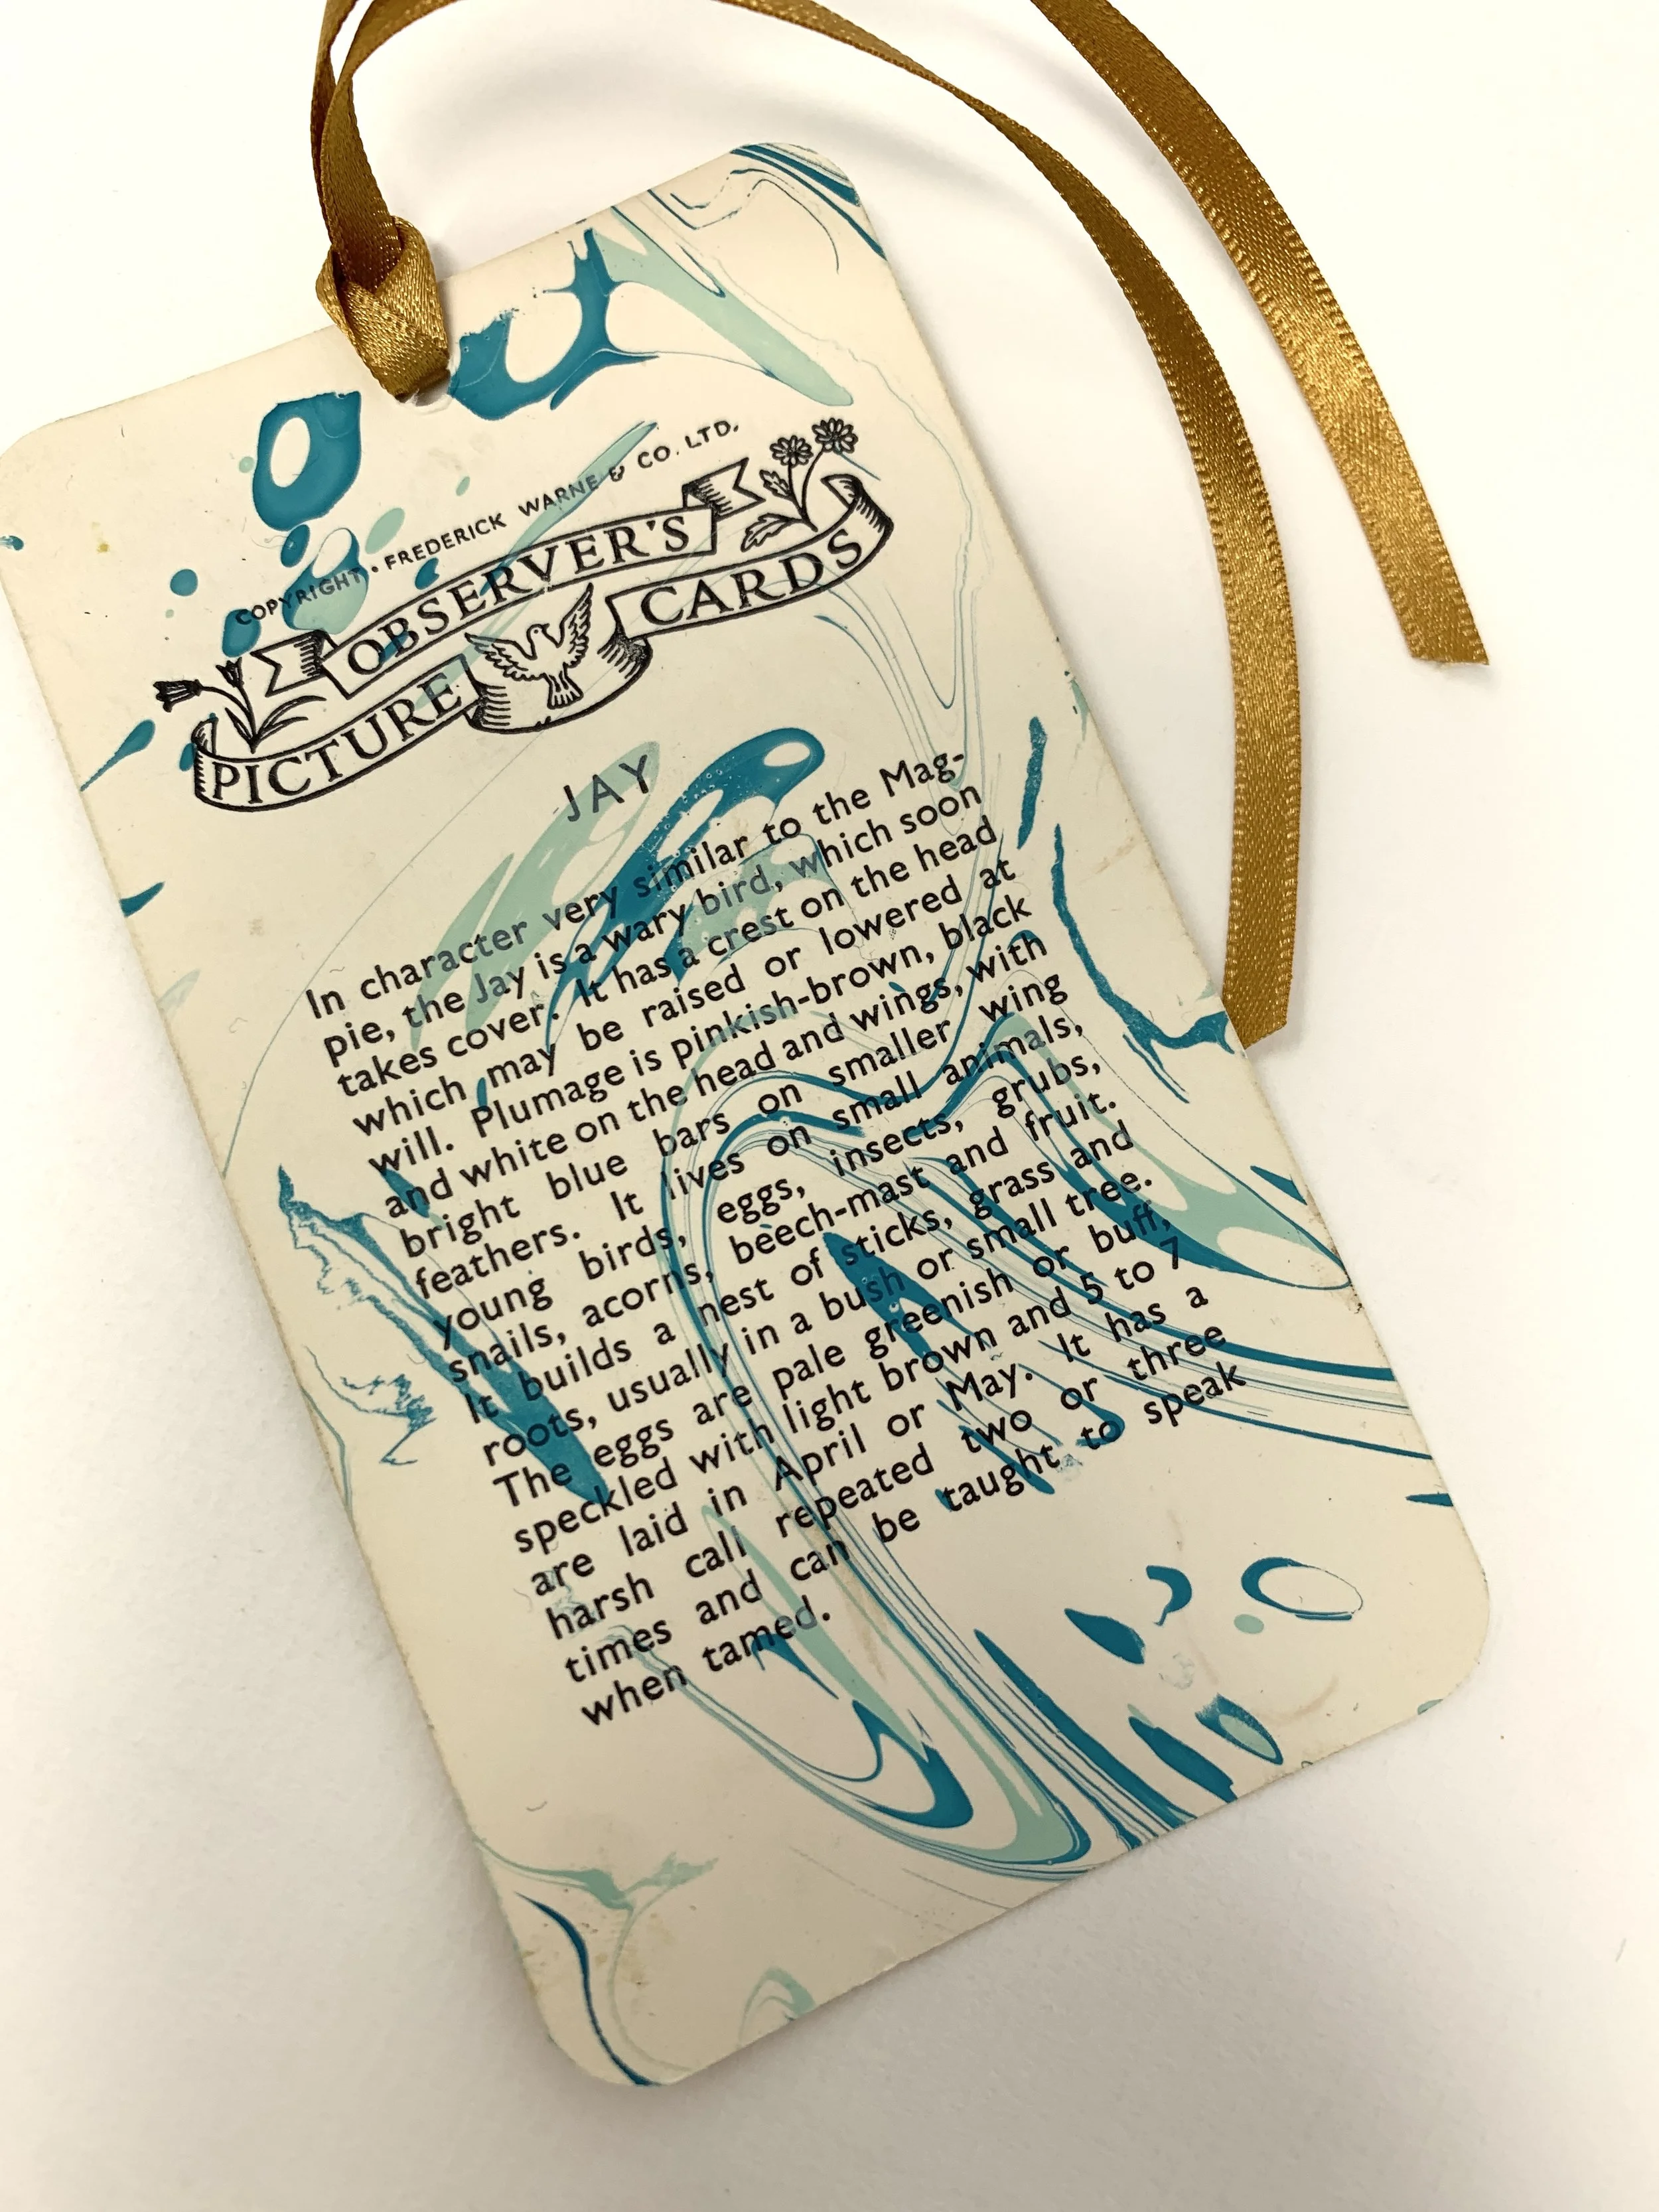 COPYRIGHT • FREDERICK WARNE & CO. LTD.
OBSERVER'S
PICTURE CARDS
JAY
In character very similar to the Mag-
pie, the Jay is a wary bird, which soon
takes cover. It has a crest on the head
which may be raised or lowered at
will. Plumage is pinkish-brown, black
and white on the head and wings, with
bright blue bars on smaller wing
feathers. It lives on small animals,
young birds, eggs, insects, grubs,
snails, acorns, beech-mast and fruit.
It builds a nest of sticks, grass and
roots, usually in a bush or small tree.
The eggs are pale greenish or buff,
speckled with light brown and 5 to 7
are laid in April or May. It has a
harsh call repeated two or three
times and can be taught to speak
when tamed.